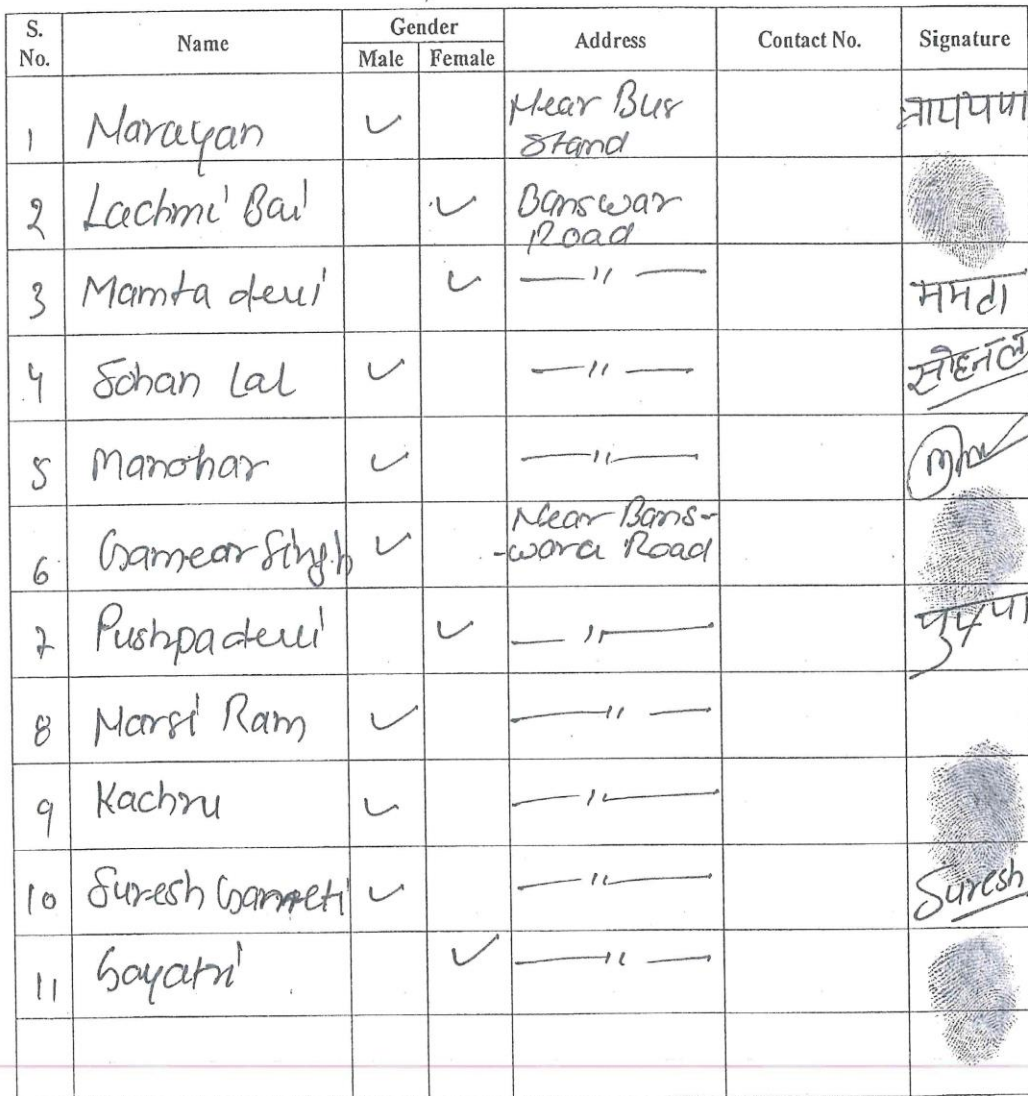 S. No. Name Gender Address Contact No. Signature
Male Female
1 Narayan ✓ Near Bus Stand नारायण
2 Lachmi Bai ✓ Banswar Road
3 Mamta devi ✓ —〃— ममता
4 Sohan Lal ✓ —〃— सोहनल
5 Manohar ✓ —〃—
6 Gamear Singh ✓ Near Bans-
-wara Road
7 Pushpa devi ✓ —〃— पुष्पा
8 Narsi Ram ✓ —〃—
9 Kachru ✓ —〃—
10 Suresh Gameti ✓ —〃— Suresh
11 Gayatri ✓ —〃—